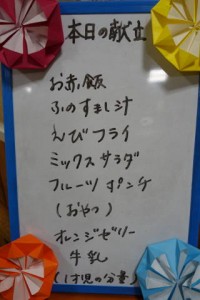 本日の献立
お赤飯
ふのすまし汁
えびフライ
ミックスサラダ
フルーツポンチ
(おやつ)
オレンジゼリー
牛乳
(1才児の分量)